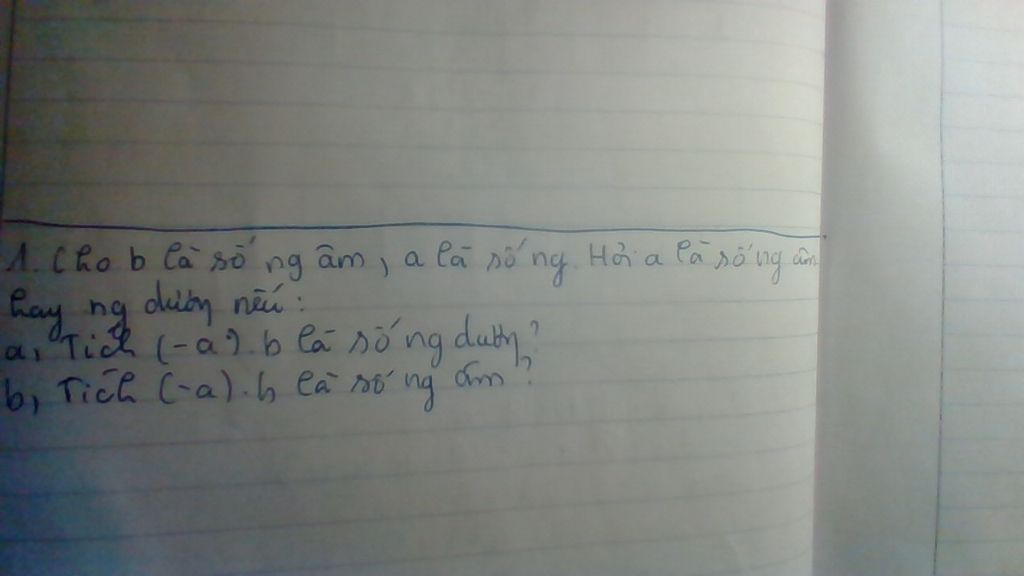 1. Cho b là số ng âm, a là số ng. Hỏi a là số ng âm
hay ng dương nếu:
a, Tích (-a).b là số ng dương?
b, Tích (-a).b là số ng âm?